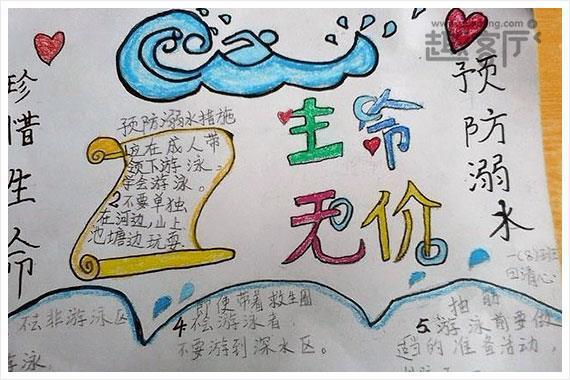 趣客厅
珍惜生命
预防溺水
生命
无价
预防溺水措施
应在成人带
领下游泳。
学会游泳。
2不要单独
在河边,山上
池塘边玩耍
一(8)班
田清心
在非游泳区
游泳
即使带着救生圈
4.
不要游到深水区。
抽筋
5.游泳前要做
适当的准备活动,